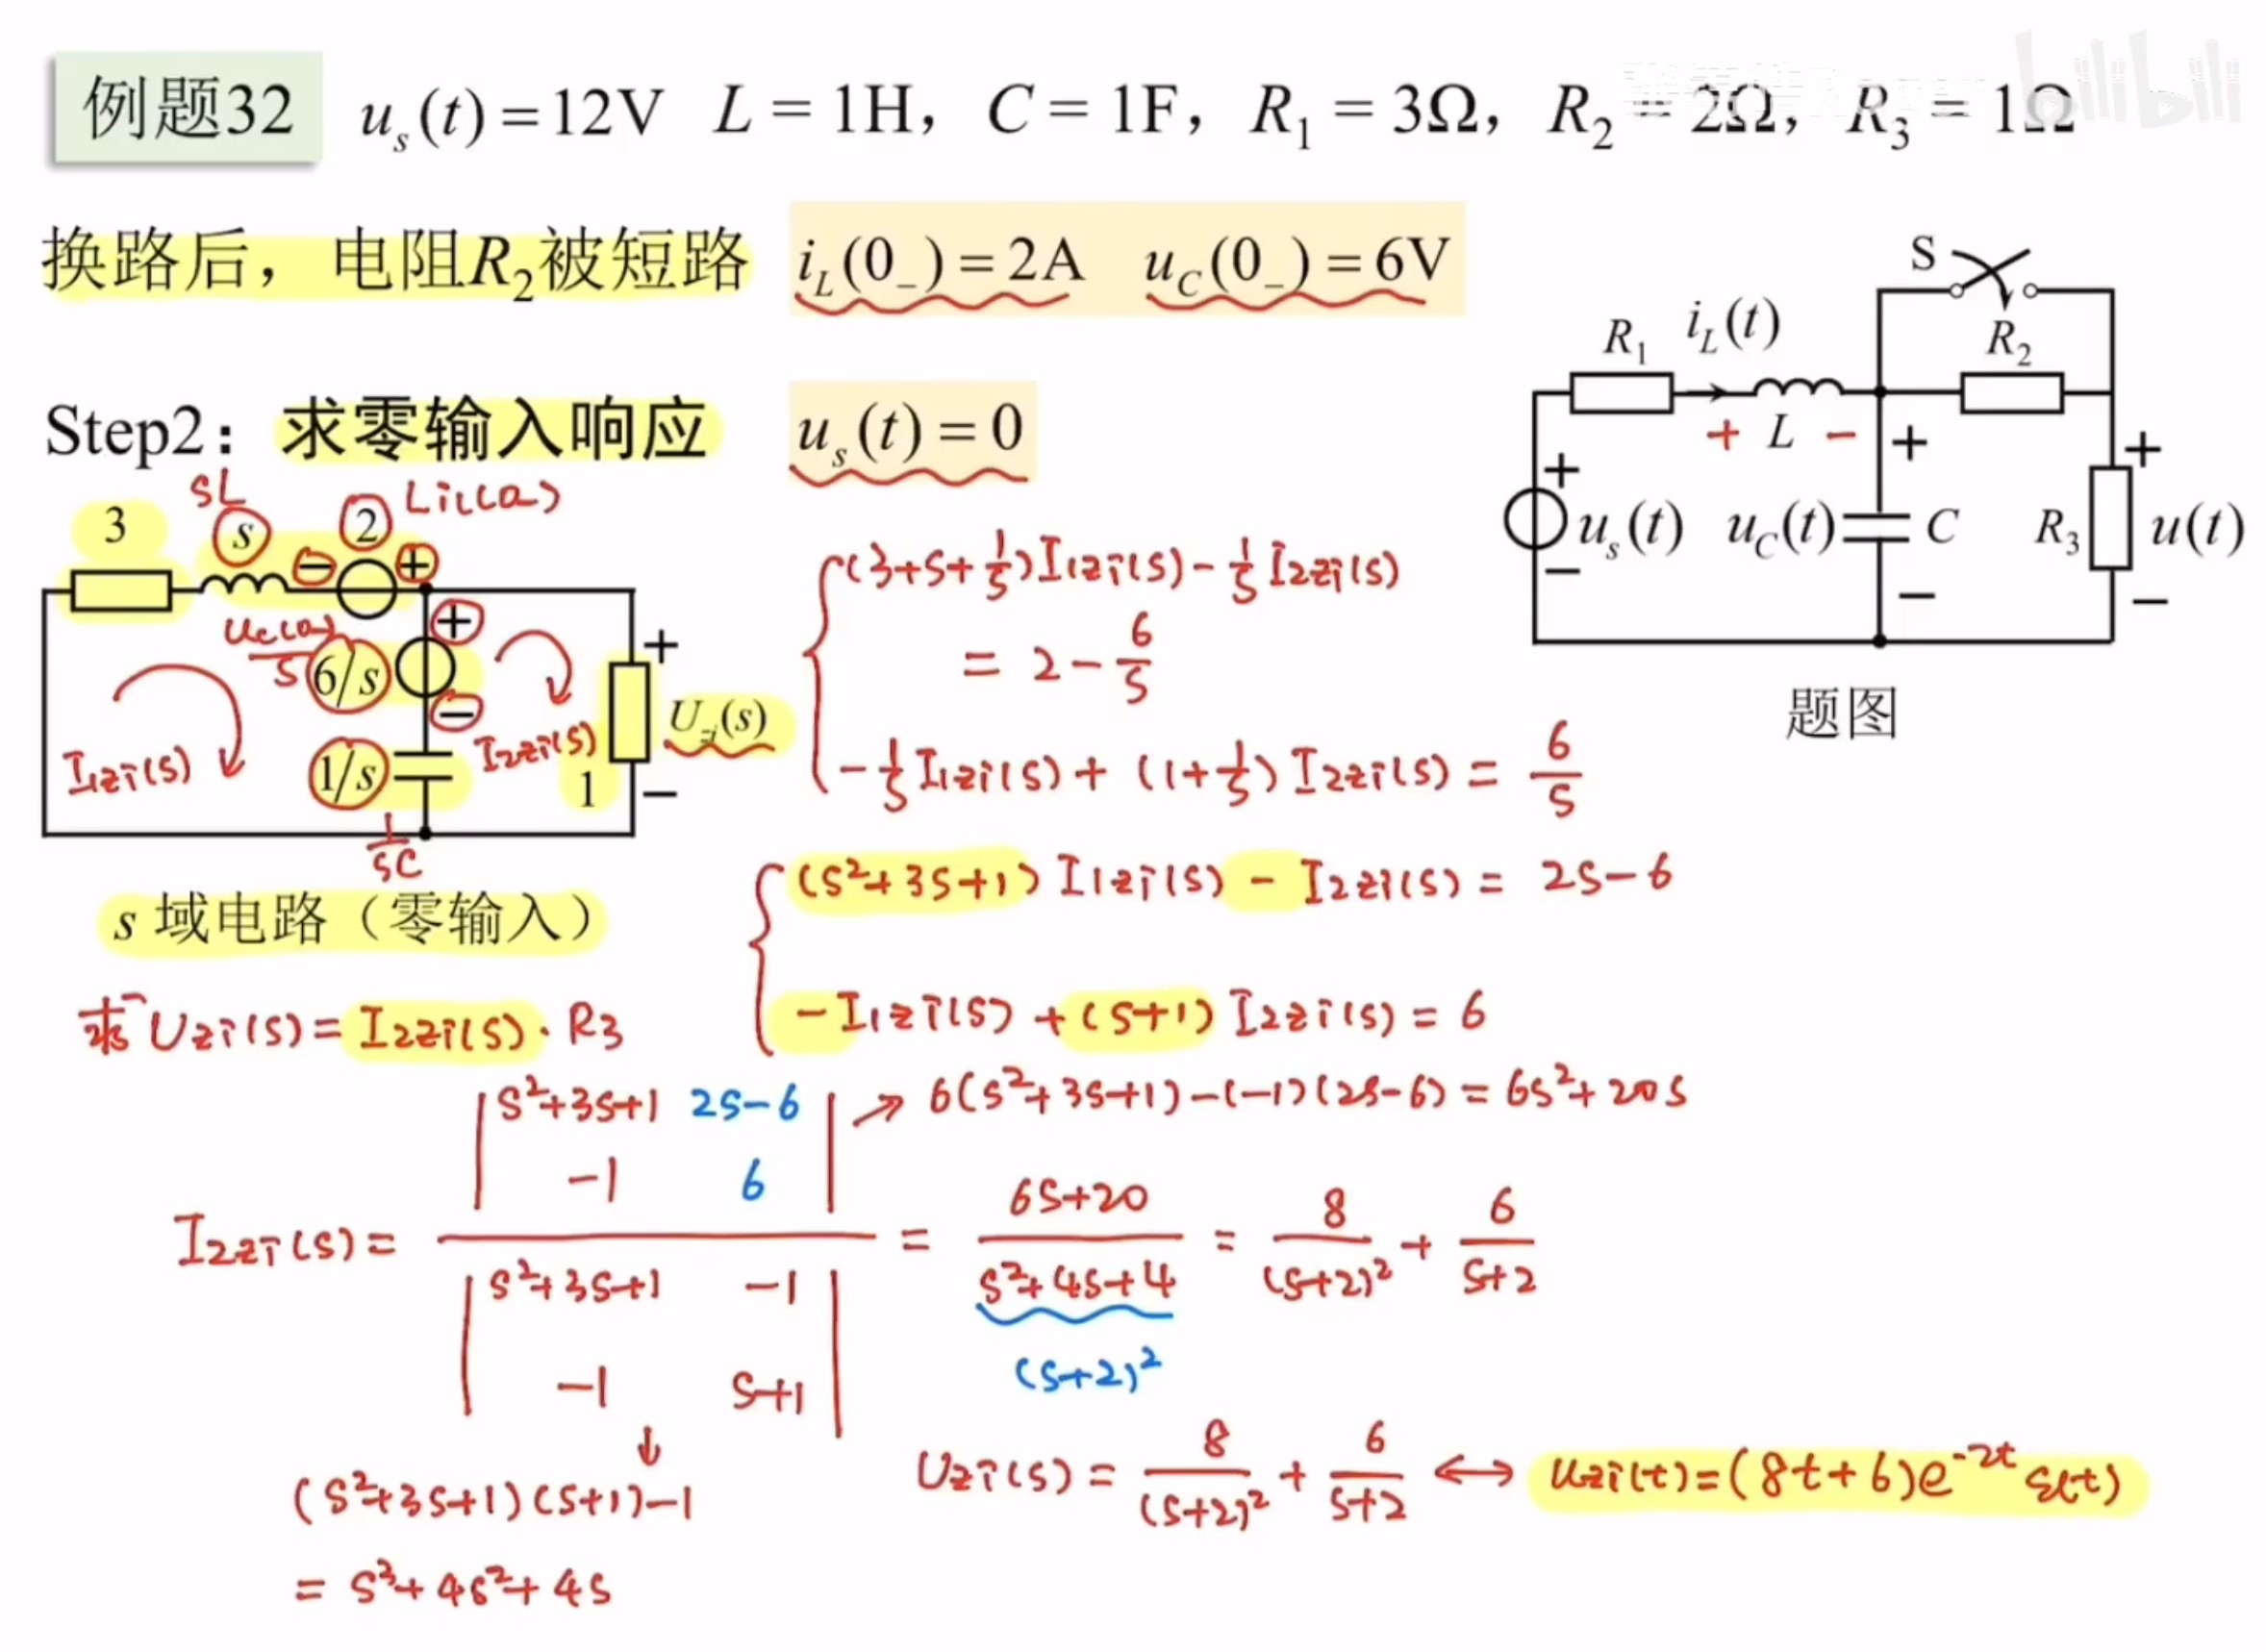 例题32 uₛ(t) = 12V L = 1H, C = 1F, R₁ = 3Ω, R₂ = 2Ω, R₃ = 1Ω
bilibili
换路后，电阻R₂被短路 i_L(0₋) = 2A u_C(0₋) = 6V
Step2：求零输入响应 uₛ(t) = 0
S
R₁ i_L(t) R₂
+ L − + +
+ uₛ(t) u_C(t) C R₃ u(t)
− − −
题图
sL Li_L(0₋)
3 s − 2 +
u_C(0₋)/s 6/s + −
I₁zi(s) 1/s I₂zi(s) 1 + U_zi(s) −
1/sC
s 域电路（零输入）
(3+s+1/s)I₁zi(s) − 1/s I₂zi(s)
= 2 − 6/s
−1/s I₁zi(s) + (1+1/s) I₂zi(s) = 6/s
(s²+3s+1) I₁zi(s) − I₂zi(s) = 2s−6
−I₁zi(s) + (s+1) I₂zi(s) = 6
求 Uzi(s) = I₂zi(s) · R₃
| s²+3s+1 2s−6 | → 6(s²+3s+1)−(−1)(2s−6) = 6s²+20s
−1 6
I₂zi(s) = = (6s+20)/(s²+4s+4) = 8/(s+2)² + 6/(s+2)
| s²+3s+1 −1 |
−1 s+1
(s+2)²
↓
(s²+3s+1)(s+1)−1
= s³+4s²+4s
Uzi(s) = 8/(s+2)² + 6/(s+2) ↔ uzi(t) = (8t+6)e^(−2t) ε(t)